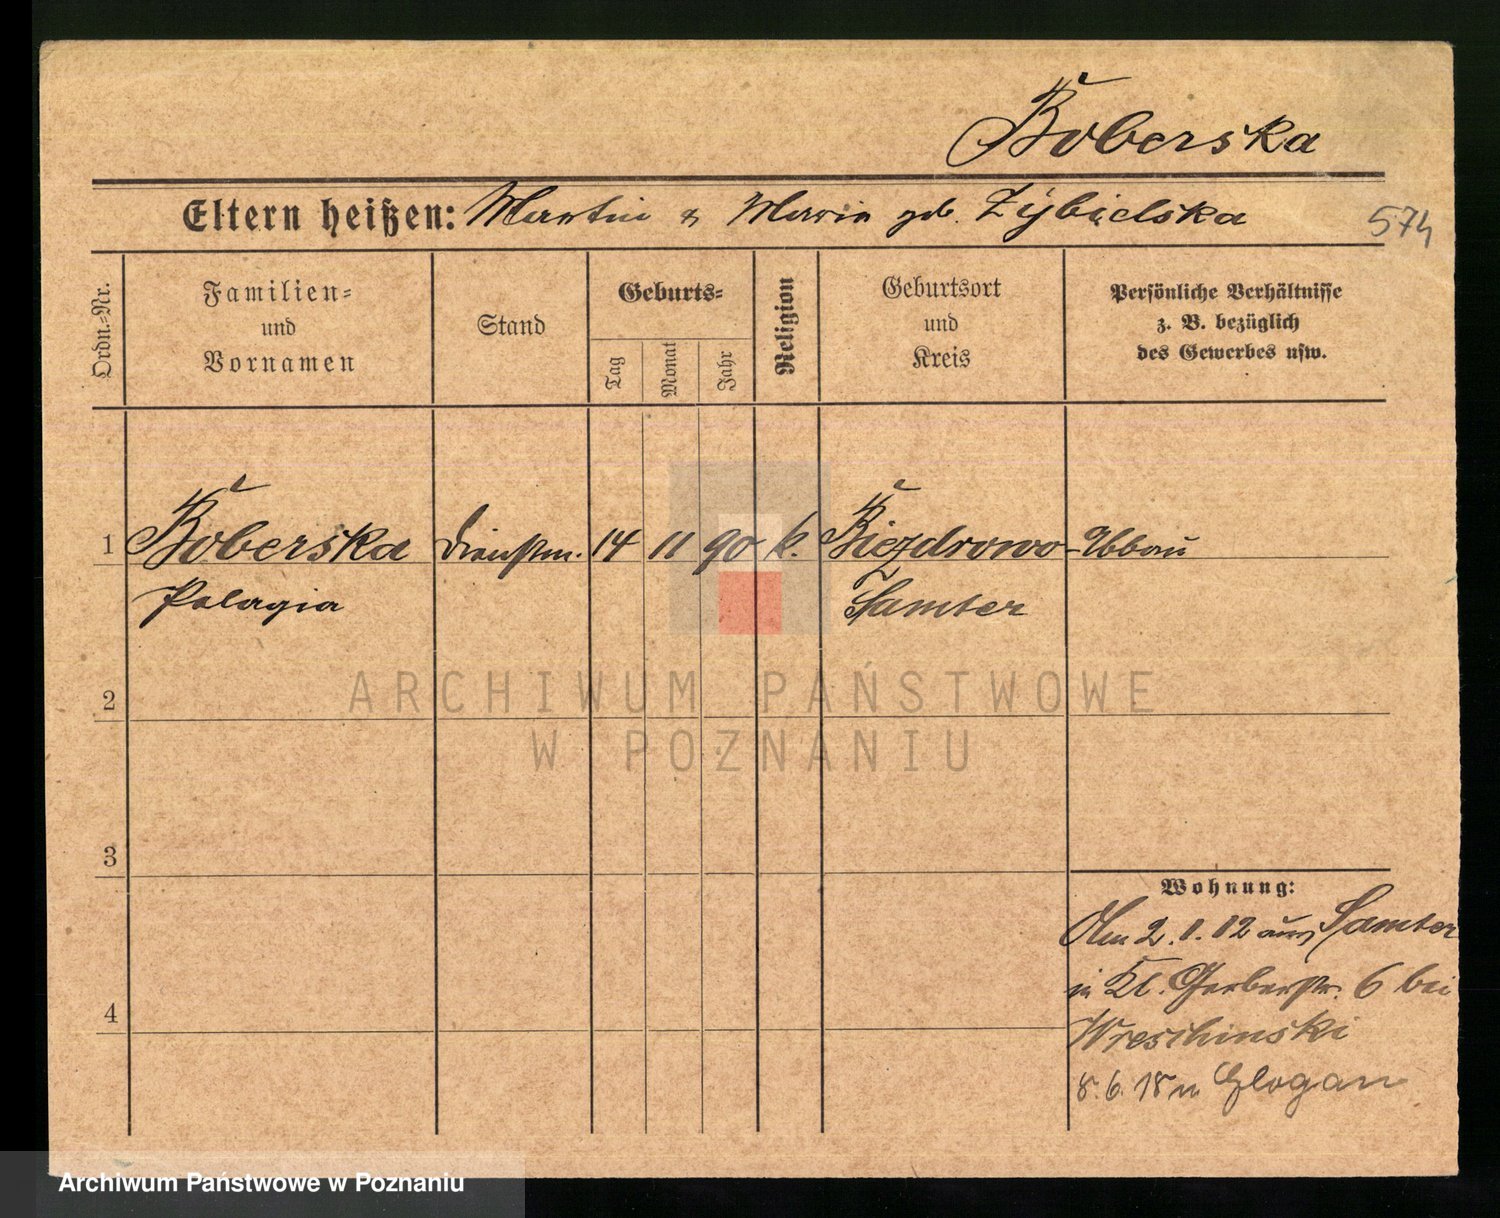 Boberska
Eltern heißen: Martin & Maria geb. Zybielska
574
Ordn.-Nr.
Familien-
und
Vornamen
Stand
Geburts-
Tag
Monat
Jahr
Religion
Geburtsort
und
Kreis
Persönliche Verhältnisse
z. B. bezüglich
des Gewerbes usw.
1 Boberska Dienstm. 14 11 90 k. Biezdrowo-Abbau
Pelagia Samter
2
ARCHIWUM PAŃSTWOWE
W POZNANIU
3
Wohnung:
Am 2.1.12 aus Samter
in Kl. Gerberstr. 6 bei
Wreschinski
4
8.6.18 n. Glogau
Archiwum Państwowe w Poznaniu